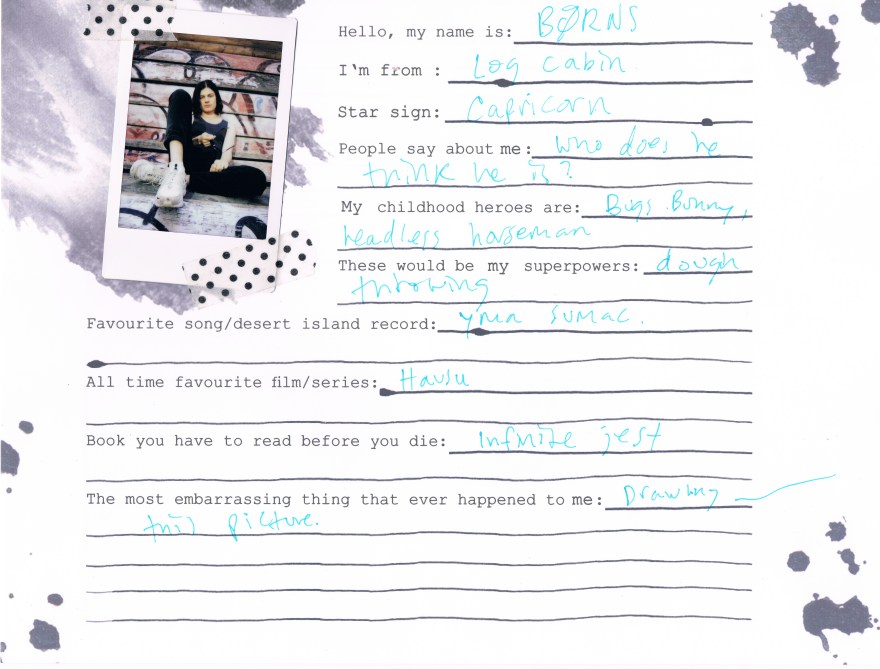 Hello, my name is: BØRNS
I'm from : Log cabin
Star sign: Capricorn
People say about me: who does he
think he is?
My childhood heroes are: Bugs Bunny,
headless horseman
These would be my superpowers: dough
throwing
Favourite song/desert island record: yma sumac.
All time favourite film/series: Hausu
Book you have to read before you die: Infinite jest
The most embarrassing thing that ever happened to me: Drawing
this picture.